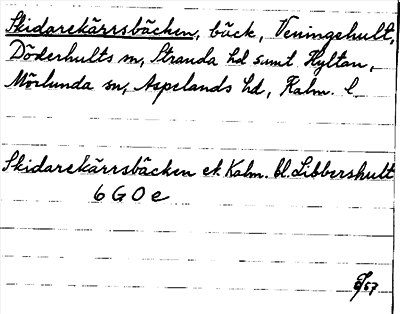 Skidarekärrsbäcken, bäck, Veningehult,
Döderhults sn, Stranda hd samt Hyltan,
Mörlunda sn, Aspelands hd, Kalm. l.
Skidarekärrsbäcken ek. Kalm. bl. Libbershult
6 G 0 e